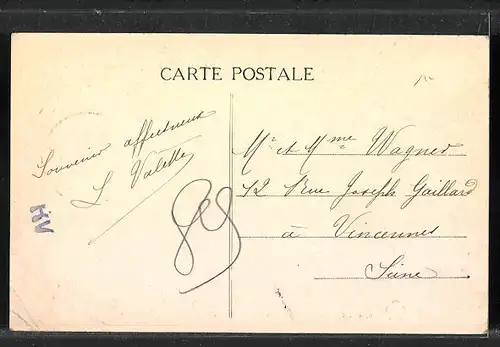 CARTE POSTALE
Souvenir affectueux
L. Valette
HV
Mr et Mme Wagner
12 Rue Joseph Gaillard
à Vincennes
Seine